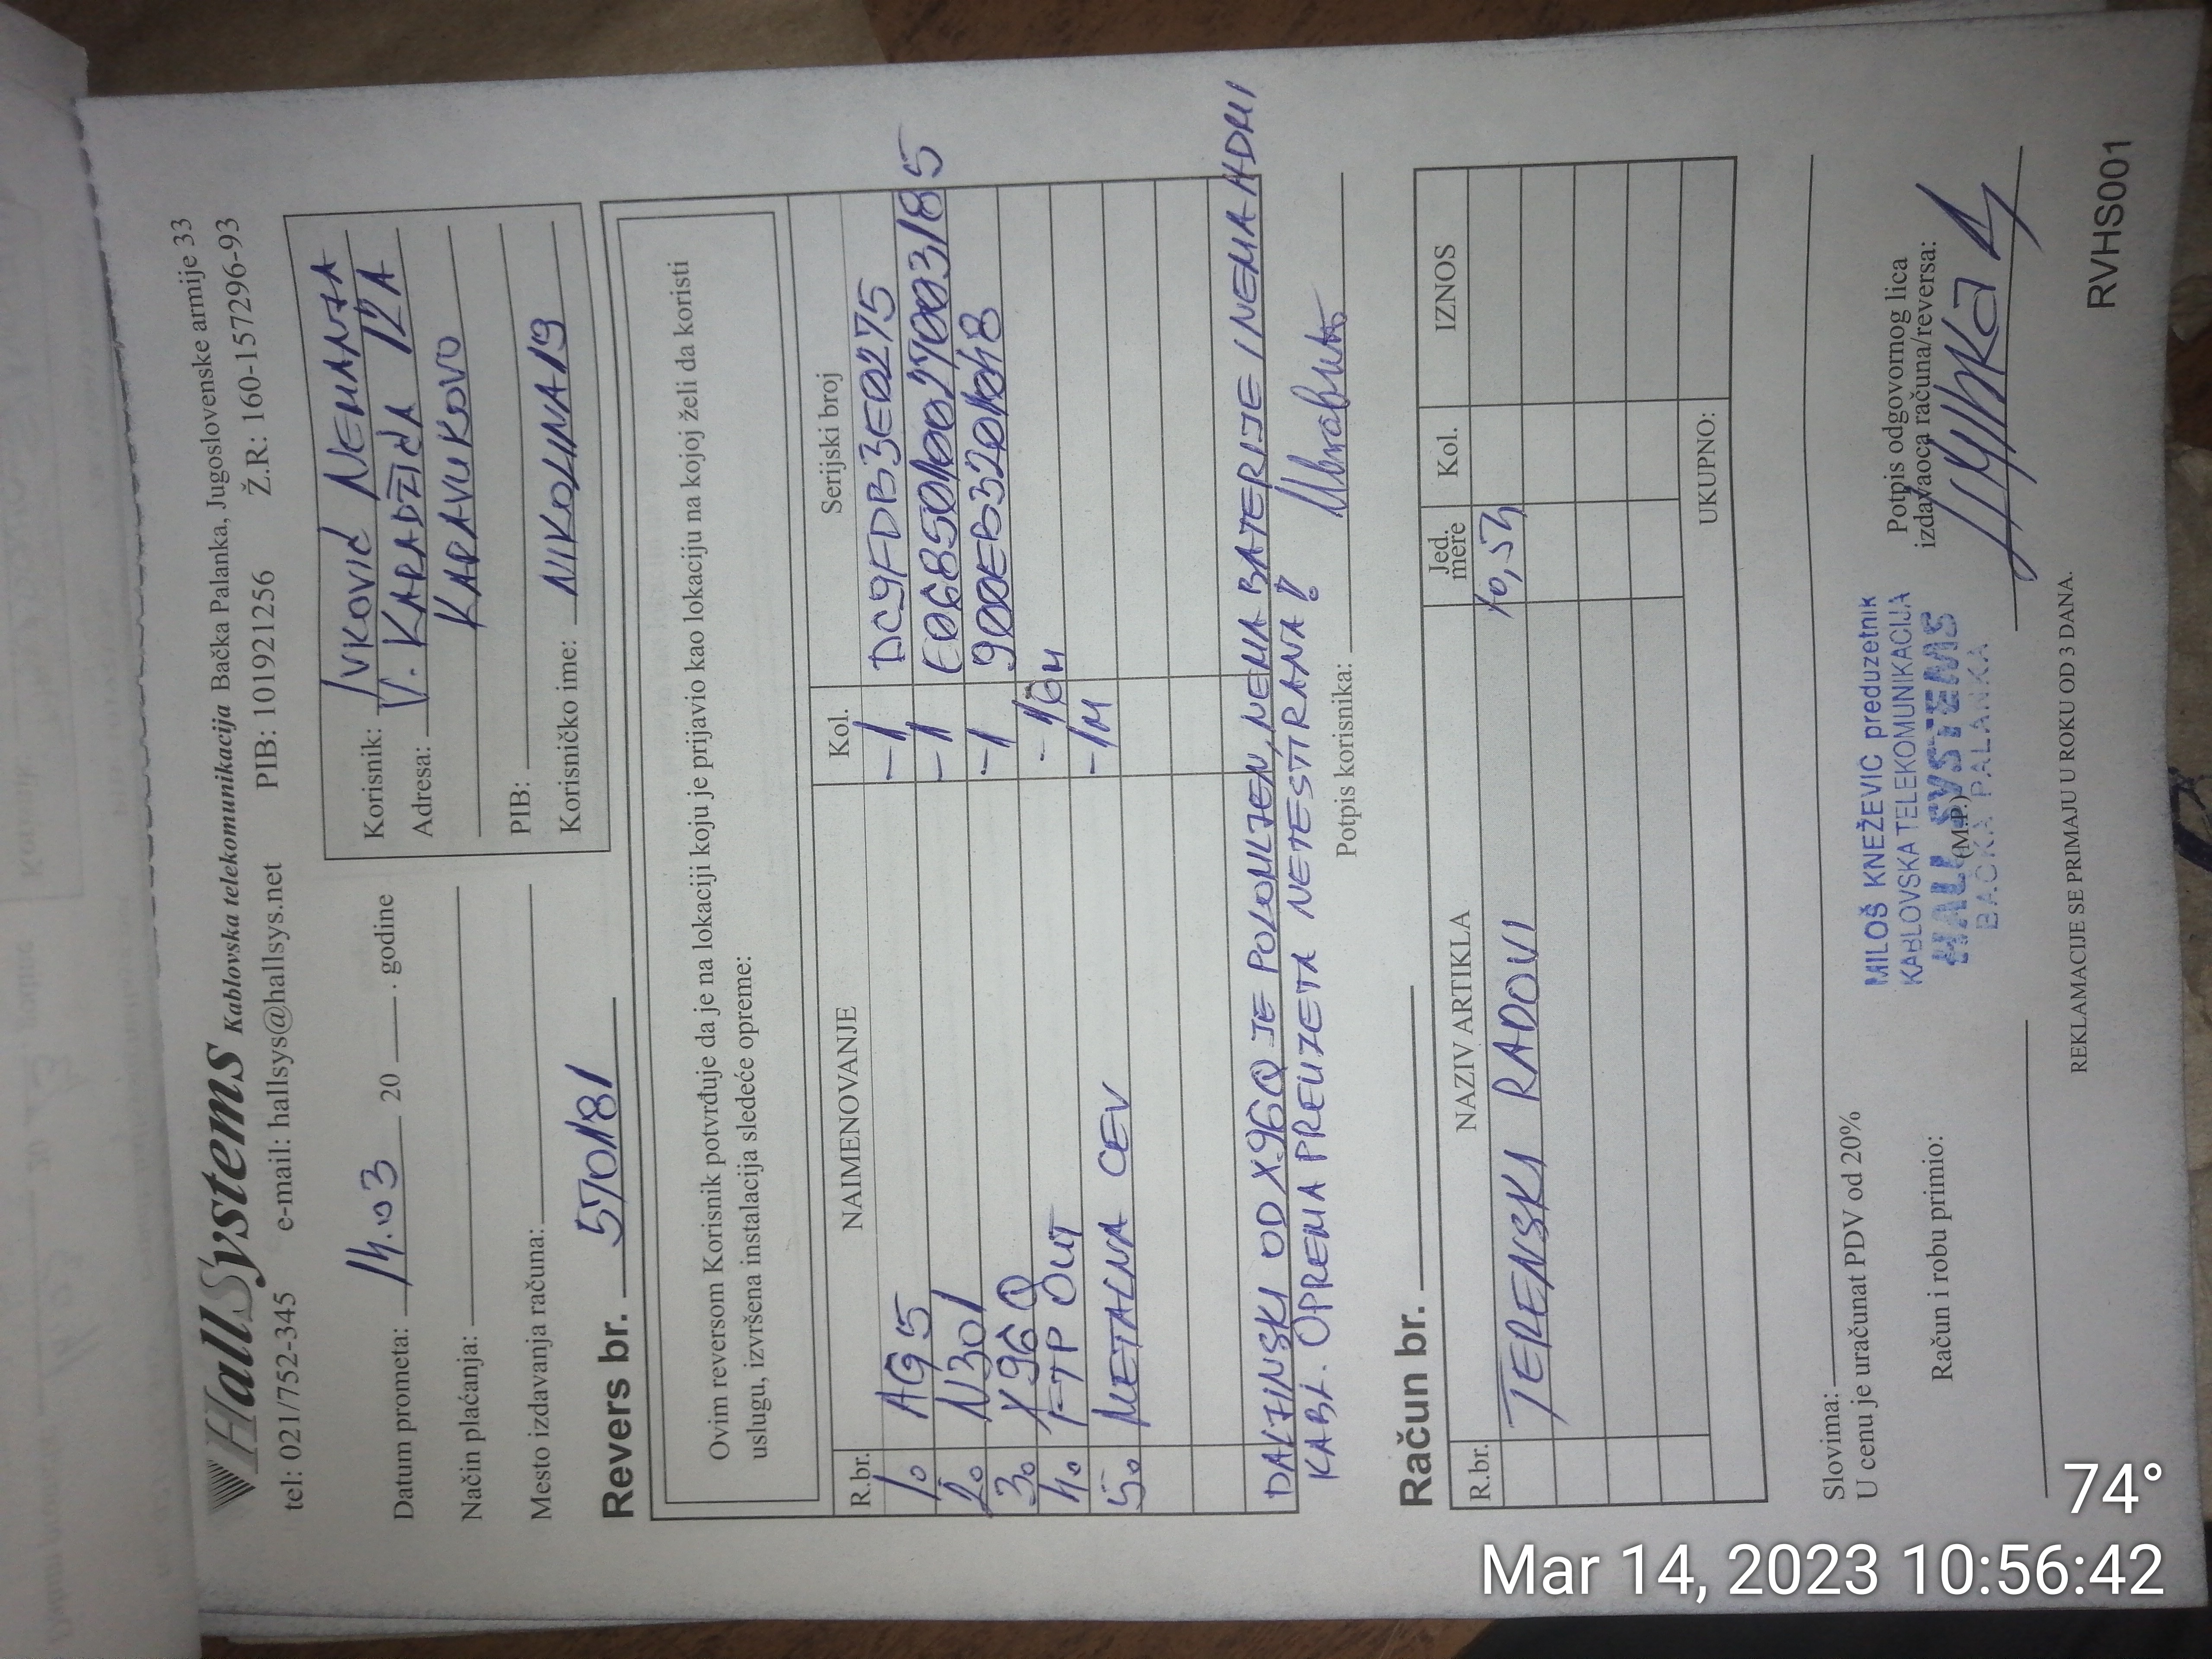 HallSystems Kablovska telekomunikacija Bačka Palanka, Jugoslovenske armije 33
tel: 021/752-345 e-mail: hallsys@hallsys.net PIB: 101921256 Ž.R: 160-157296-93
Datum prometa: 14.03 20 . godine
Način plaćanja:
Mesto izdavanja računa:
Korisnik: IVKOVIĆ NEMANJA
Adresa: V. KARADŽIĆA 12A
KARAVUKOVO
PIB:
Korisničko ime: NIKOLINA19
Revers br. 570181
Ovim reversom Korisnik potvrđuje da je na lokaciji koju je prijavio kao lokaciju na kojoj želi da koristi
uslugu, izvršena instalacija sledeće opreme:
R.br. NAIMENOVANJE Kol. Serijski broj
1. AG5 -1 DC9FDB3E0275
2. N301 -1 E0685010027003185
3. X96Q -1 900EB3201048
4. FTP OUT
5. METALNA CEV -1M
DALJINSKI OD X96Q JE POLOMLJEN, NEMA BATERIJE I NEMA HDMI
KABL. OPREMA PREUZETA NETESTIRANA!
Potpis korisnika:
Račun br.
R.br. NAZIV ARTIKLA Jed. mere Kol. IZNOS
TERENSKI RADOVI 10,54
UKUPNO:
Slovima:
U cenu je uračunat PDV od 20%
Račun i robu primio:
MILOŠ KNEŽEVIĆ preduzetnik
KABLOVSKA TELEKOMUNIKACIJA
HALL SYSTEMS
(M.P.)
BAČKA PALANKA
Potpis odgovornog lica
izdavaoca računa/reversa:
REKLAMACIJE SE PRIMAJU U ROKU OD 3 DANA.
RVHS001
74°
Mar 14, 2023 10:56:42